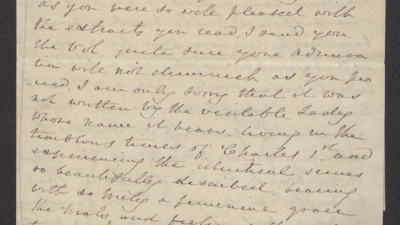 as you were so well pleased with
the extracts you read, I send you
the Vol quite sure your admira
tion will not diminish as you pro
ceed I am only sorry that it was
not written by the veritable Lady
whose name it bears living in the
troublous times of Charles 1st and
experiencing the identical scenes
so beautifully described bearing
with so much a feminine grace
the trials and